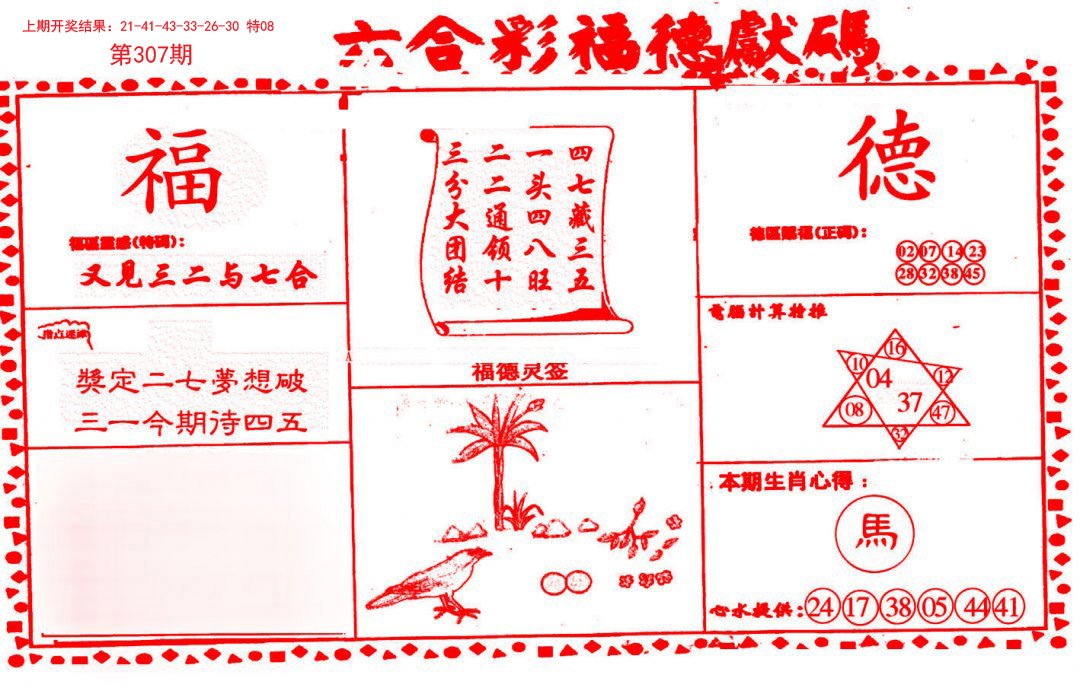 上期开奖结果：21-41-43-33-26-30 特08
第307期
六合彩福德獻碼
福
福區靈感(特碼)：
又見三二与七合
指点迷津
獎定二七夢想破
三一今期待四五
四七藏三五
一头四八旺
二二通领十
三分大团结
福德灵签
德
德區賜福(正碼)：
02 07 14 23
28 32 38 45
電腦計算精推
16
10 12
04
37
08 47
32
本期生肖心得：
馬
心水提供：24 17 38 05 44 41